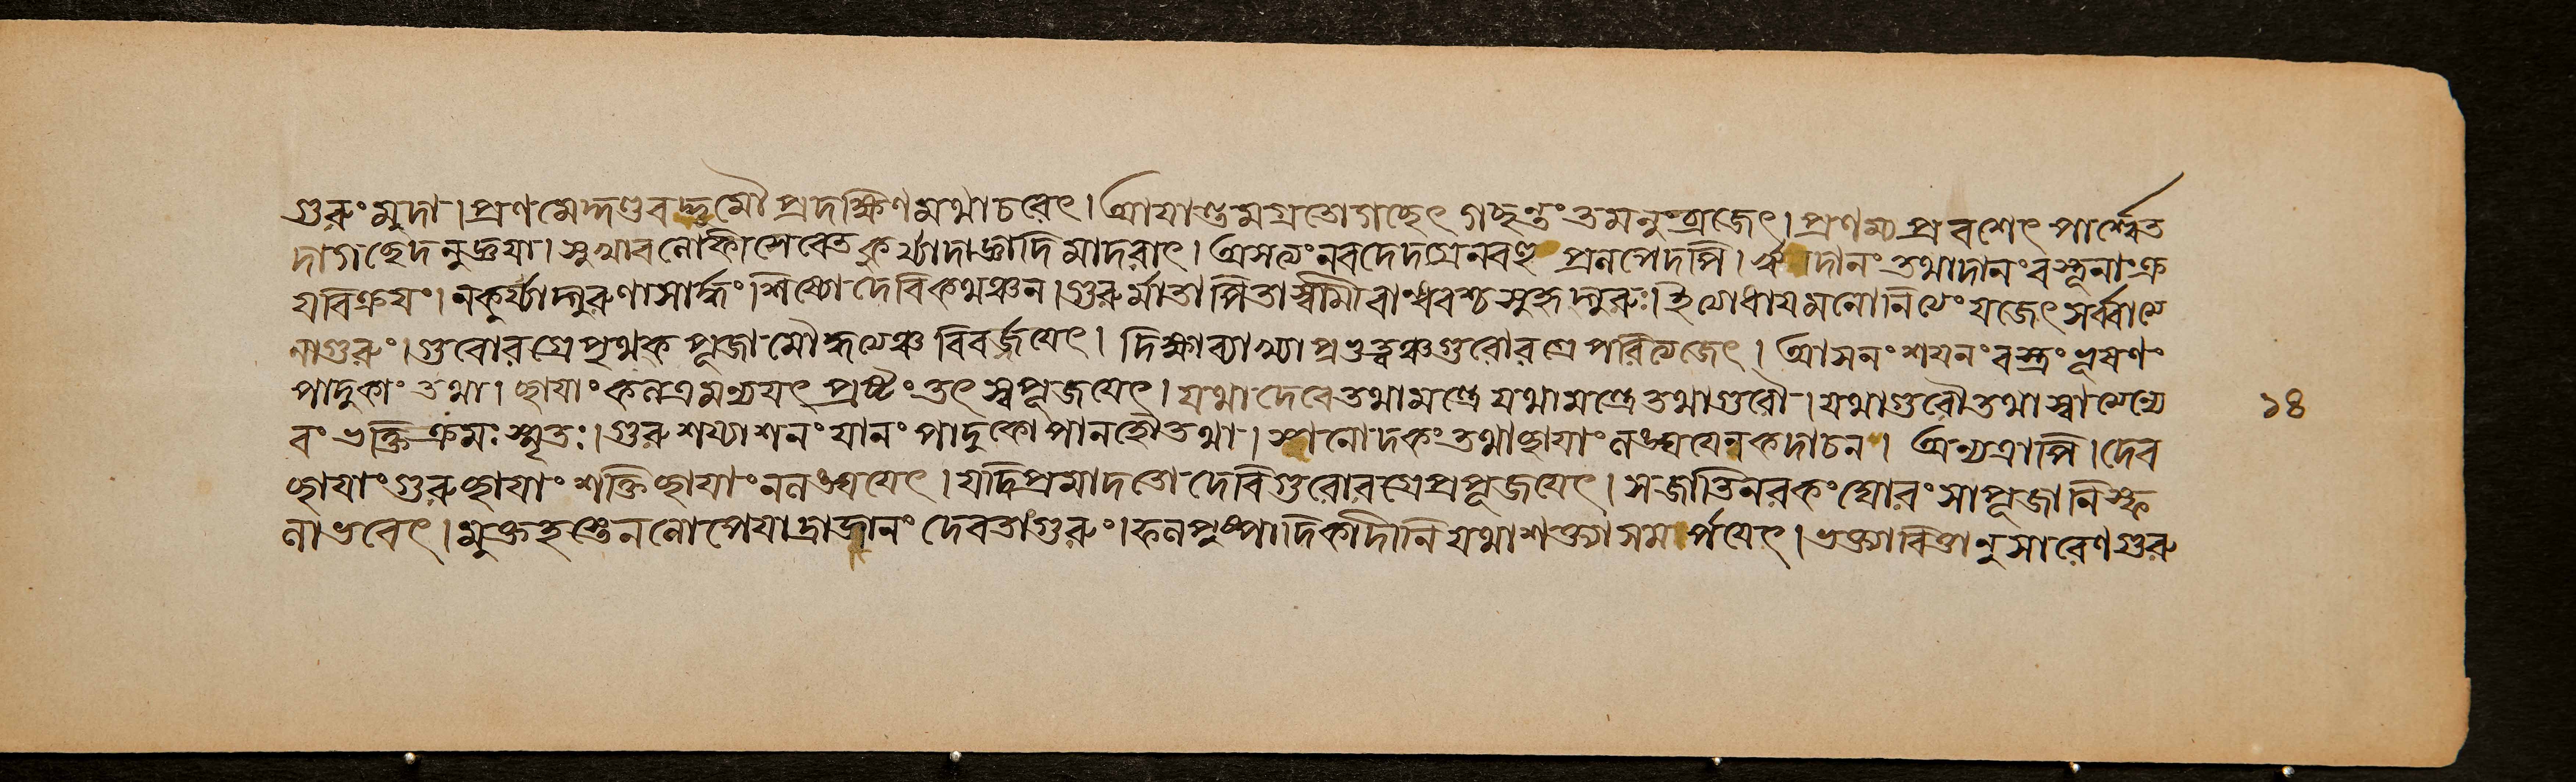 গুরুং মুদা। প্রণমেদ্দণ্ডবদ্ভূমৌ প্রদক্ষিণমথাচরেৎ। আয়ান্তমগ্রতোগচ্ছেৎ গচ্ছন্তং তমনুংব্রজেৎ। প্রণম্য প্রবশেৎ পার্শ্বেত
দাগচ্ছেদনুজ্ঞয়া। মুখাবলোকী সেবেত কুর্য্যাদাজ্ঞাদিমাদরাৎ। অসত্যং নবদেদগ্রে নবহু প্রলপেদপি। ঋণদানং তথাদানং বস্তূনাং ক্র
য়বিক্রয়ং। নকুর্য্যাদ্গুরুণাসার্দ্ধং। শিষ্যোদেবি কথঞ্চন। গুরুর্মাতা পিতাস্বামী বান্ধবশ্চ সুহৃদ্গুরুঃ। ইত্যেধায়মনোনিত্যং যজেৎ সর্ব্বাত্ম
নাগুরুং। গুরোরগ্রে পৃথক পূজামৌদ্ধত্যঞ্চ বিবর্জ্জয়েৎ। দিক্ষাব্যাখ্যা প্রভুত্বঞ্চ গুরোরগ্রে পরিত্যজেৎ। আসনং শয়নং বস্ত্রং ভূষণং
পাদুকাং তথা। ছায়াং কলত্রমন্যয়ৎ প্রষ্টং তৎ স্বপূজয়েৎ। যথাদেবেতথামন্ত্রে যথামন্ত্রেতথাগুরৌ। যথাগুরৌতথা স্বাত্মন্যে
বং ভক্তিক্রমঃ স্মৃতঃ। গুরু শয্যাশনং যানং পাদুকোপানহৌতথা। স্নানোদকং তথাছায়াং লঙ্ঘয়েন্নকদাচন। অন্যত্রাপি। দেব
ছায়াং গুরুছায়াং শক্তিছায়াং নলঙ্ঘয়েৎ। যদিপ্রমাদতো দেবি গুরোরগ্রেপ্রপূজয়েৎ। সজাতিনরকং ঘোরং সাপূজানিস্ফ
লাভবেৎ। মুক্তহস্তেননোপেয়াদ্রাজানং দেবতাংগুরুং। ফলপুষ্পাদিকাদীনি যথাশক্ত্যাসমর্পয়েৎ। ভক্ত্যাবিত্তানুসারেণগুরু
১৪